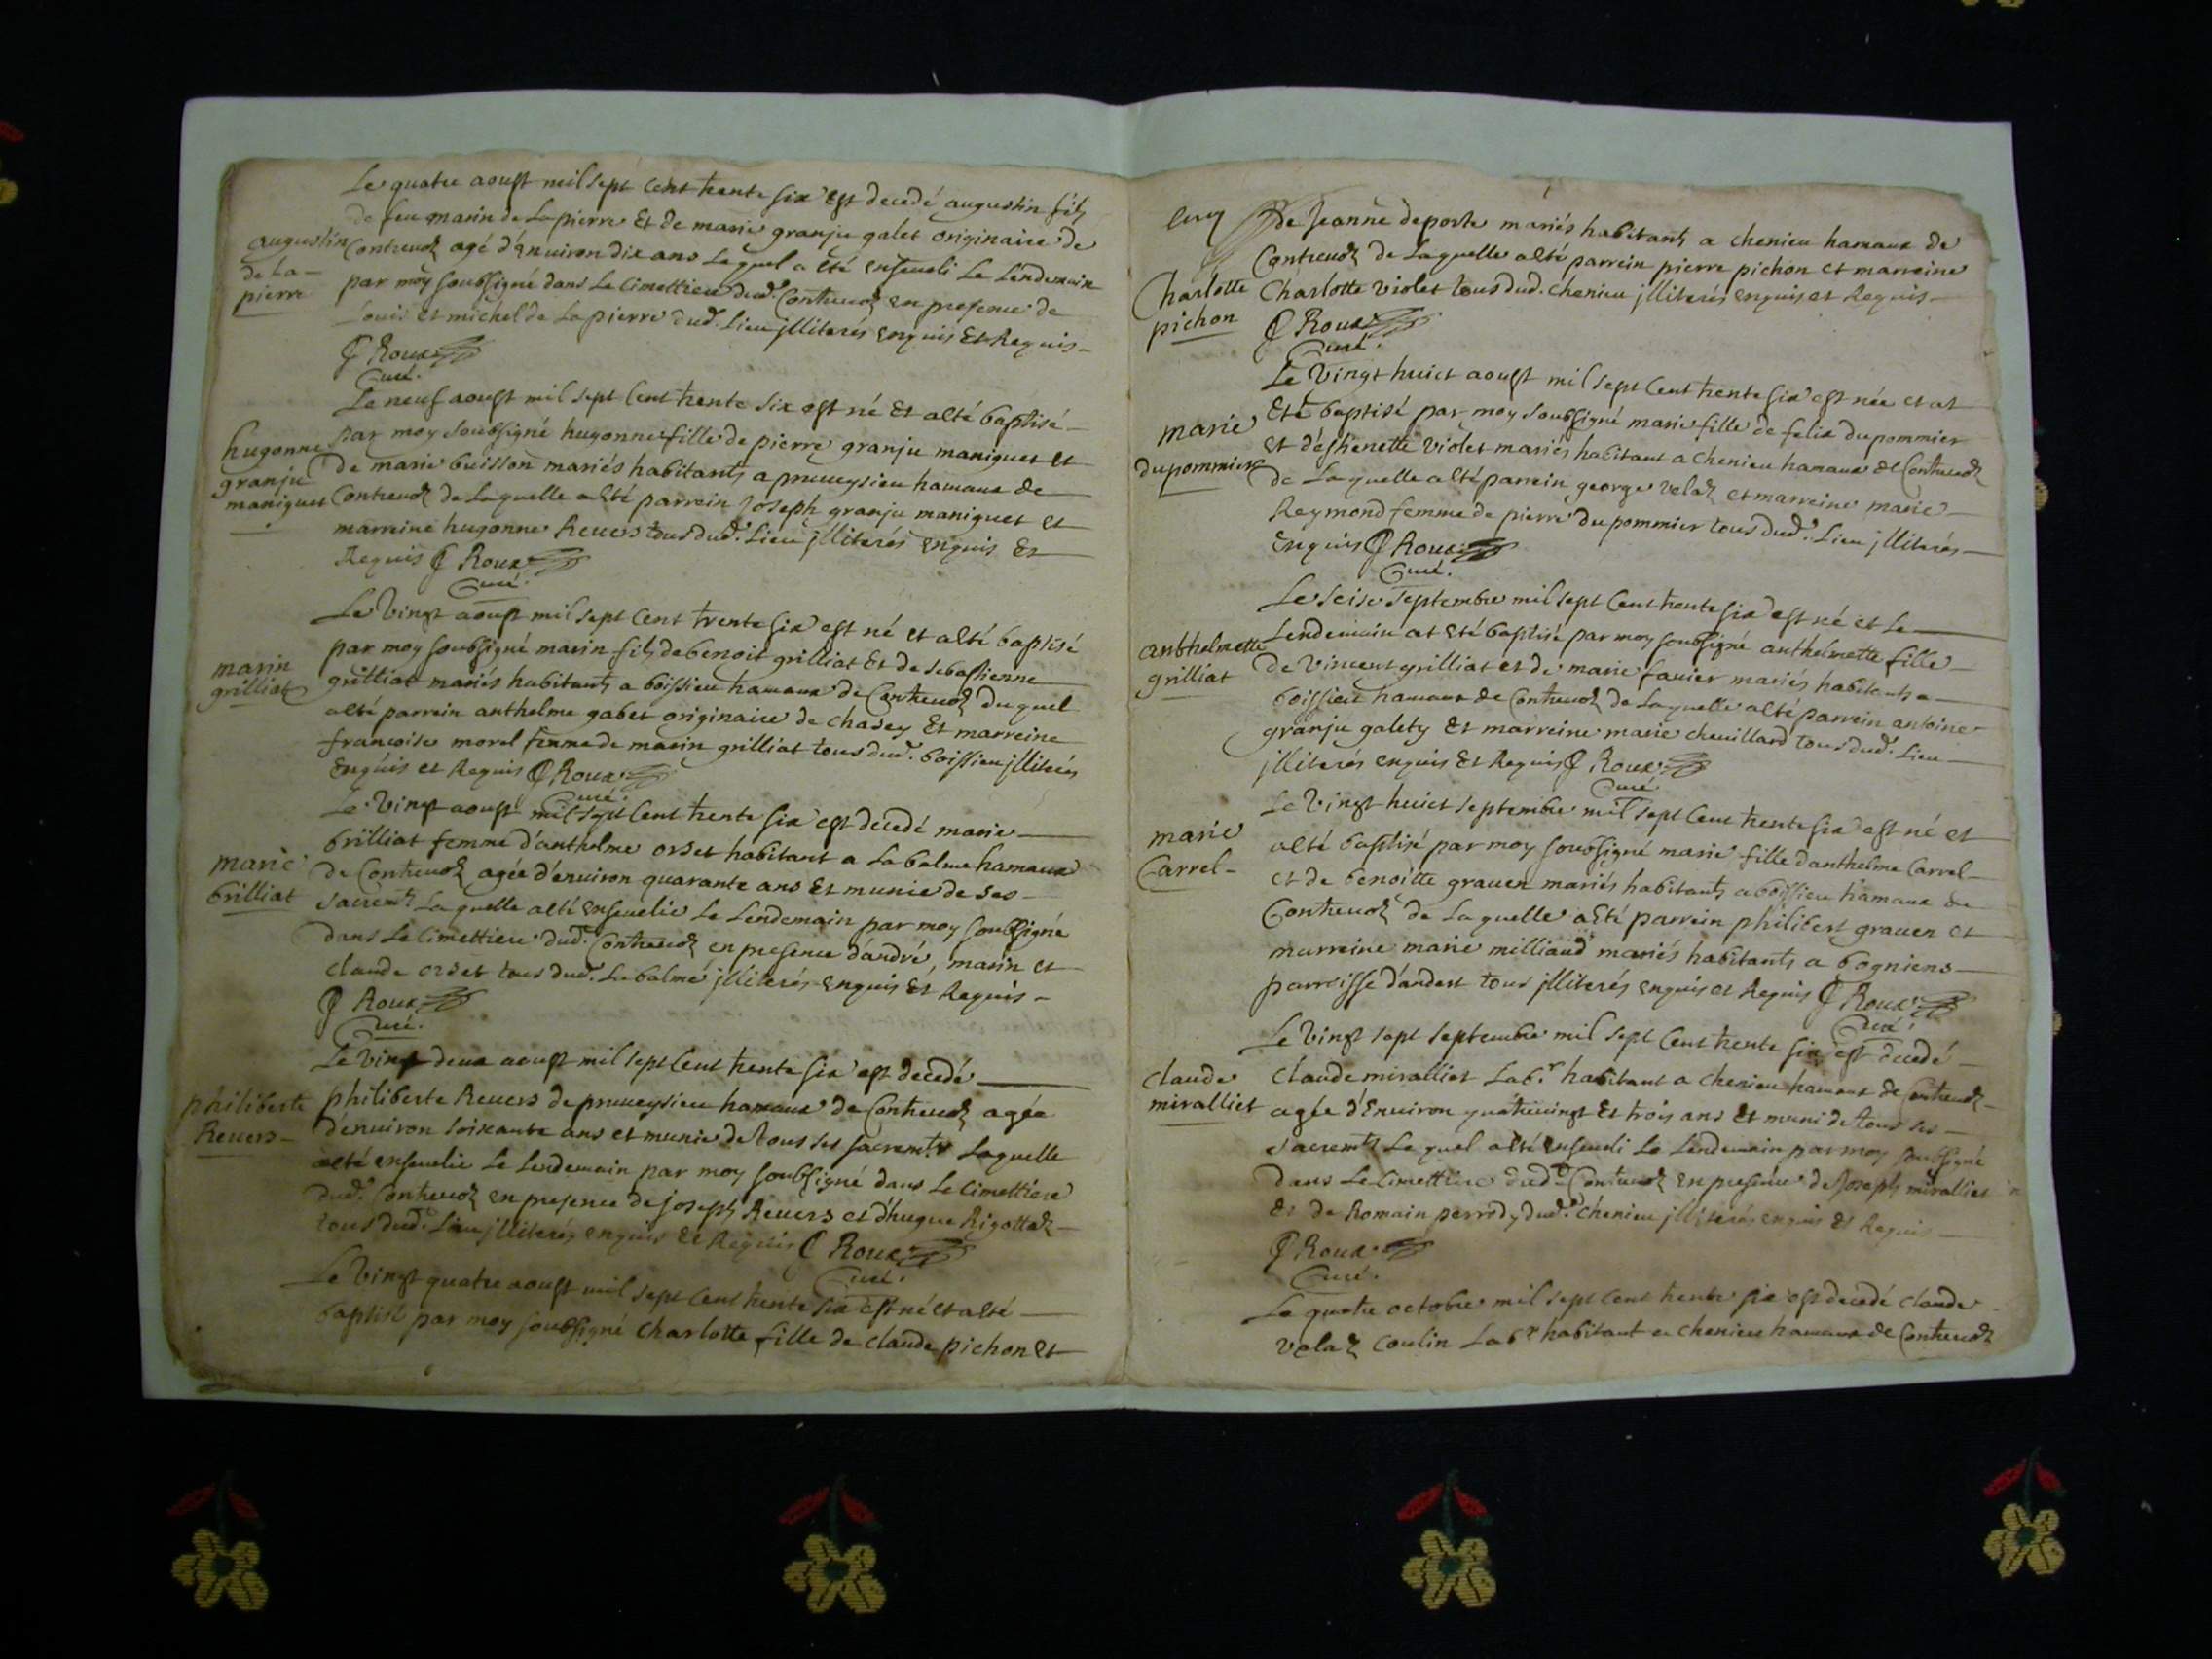 Le quatre aoust mil sept cent trente six est decedé augustin fils
de feu marin de Lapierre et de marie granju galet originaire de
augustin de la pierre
Contrevoz agé d'environ dix ans Lequel a été enseveli Le Lendemain
par moy soubsigné dans Le Cimettiere dud. Contrevoz en presence de
Louis et michel de Lapierre dud. Lieu jlliterés enquis et Requis
Roux
Curé.
Le neuf aoust mil sept Cent trente six est né et a été baptisé
hugonne granju maniguet
par moy soubsigné hugonne fille de pierre granju maniguet et
de marie buisson mariés habitants a pruveysieu hamaux de
Contrevoz de Laquelle a été parrein Joseph granju maniguet et
marreine hugonne Revers tous dud. Lieu jlliterés enquis et
Requis Roux
Curé.
Le Vingt aoust mil sept Cent trente six est né et a été baptisé
par moy soubsigné marin fils de benoit grilliat et de sebastienne
marin grilliat
grilliat mariés habitants a boissieu hamaux de Contrevoz duquel
a été parrein anthelme gabet originaire de chasey et marreine
francoise morel femme de marin grilliat tous dud. boissieu jlliterés
enquis et Requis Roux
Curé.
Le Vingt aoust mil sept Cent trente six est decedé marie
brilliat femme d'anthelme orset habitant a La balme hamaux
marie brilliat
de Contrevoz agée d'environ quarante ans et munie de ses
sacrem.ts Laquelle a été ensevelie Le Lendemain par moy soubsigné
dans Le Cimettiere dud. Contrevoz en presence d'andré, marin et
claude orset tous dud. La balme jlliterés enquis et Requis
Roux
Curé.
Le Vingt deux aoust mil sept Cent trente six est decedé
philiberte Revers
philiberte Revers de pruveysieu hamaux de Contrevoz agée
d'environ soixante ans et munie de tous ses sacrem.ts Laquelle
a été ensevelie Le Lendemain par moy soubsigné dans Le Cimettiere
dud. Contrevoz en presence de joseph Revers et d'hugue Rigottaz
tous dud. Lieu jlliterés enquis et Requis Roux
Curé.
Le Vingt quatre aoust mil sept Cent trente six est né et a été
baptisé par moy soubsigné Charlotte fille de claude pichon et
de Jeanne deporte mariés habitants a chenieu hamaux de
Contrevoz de Laquelle a été parrein pierre pichon et marreine
Charlotte pichon
Charlotte Violet tous dud. chenieu jlliterés enquis et Requis
Roux
Curé.
Le Vingt huict aoust mil sept Cent trente six est née et at
été baptisé par moy soubsigné marie fille de felix dupommier
marie dupommier
et d'esthenette Violet mariés habitant a chenieu hamaux de Contrevoz
de Laquelle a été parrein george velaz et marreine marie
Reymond femme de pierre dupommier tous dud. Lieu jlliterés
enquis Roux
Curé.
Le seise septembre mil sept Cent trente six est né et Le
anthelmette grilliat
Lendemain at été baptisé par moy soubsigné anthelmette fille
de Vincent grilliat et de marie favier mariés habitants a
boissieu hamaux de Contrevoz de Laquelle a été parrein antoine
granju galety et marreine marie chevillard tous dud. Lieu
jlliterés enquis et Requis Roux
Curé.
Le Vingt huict septembre mil sept Cent trente six est né et
marie Carrel
a été baptisé par moy soubsigné marie fille d'anthelme Carrel
et de benoitte graven mariés habitants a boissieu hamaux de
Contrevoz de Laquelle a été parrein philibert graven et
marreine marie milliand mariés habitants a bogniens
parroisse d'andert tous jlliterés enquis et Requis Roux
Curé.
Le Vingt sept septembre mil sept Cent trente six est decedé
claude miralliet
claude miralliet Lab.r habitant a chenieu hamaux de Contrevoz
agée d'environ quatrevingt et trois ans et muni de tous ses
sacrem.ts Lequel a été enseveli Le Lendemain par moy soubsigné
dans Le Cimettiere dud. Contrevoz en presence de Joseph miralliet
et de Romain perrody dud. chenieu jlliterés enquis et Requis
Roux
Curé.
Le quatre octobre mil sept Cent trente six est decedé claude
velaz coulin Lab.r habitant a chenieu hamaux de Contrevoz